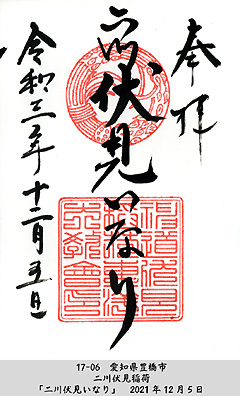 奉拝
二川伏見いなり
令和三年十二月五日
17-06 愛知県豊橋市
二川伏見稲荷
「二川伏見いなり」 2021年12月5日